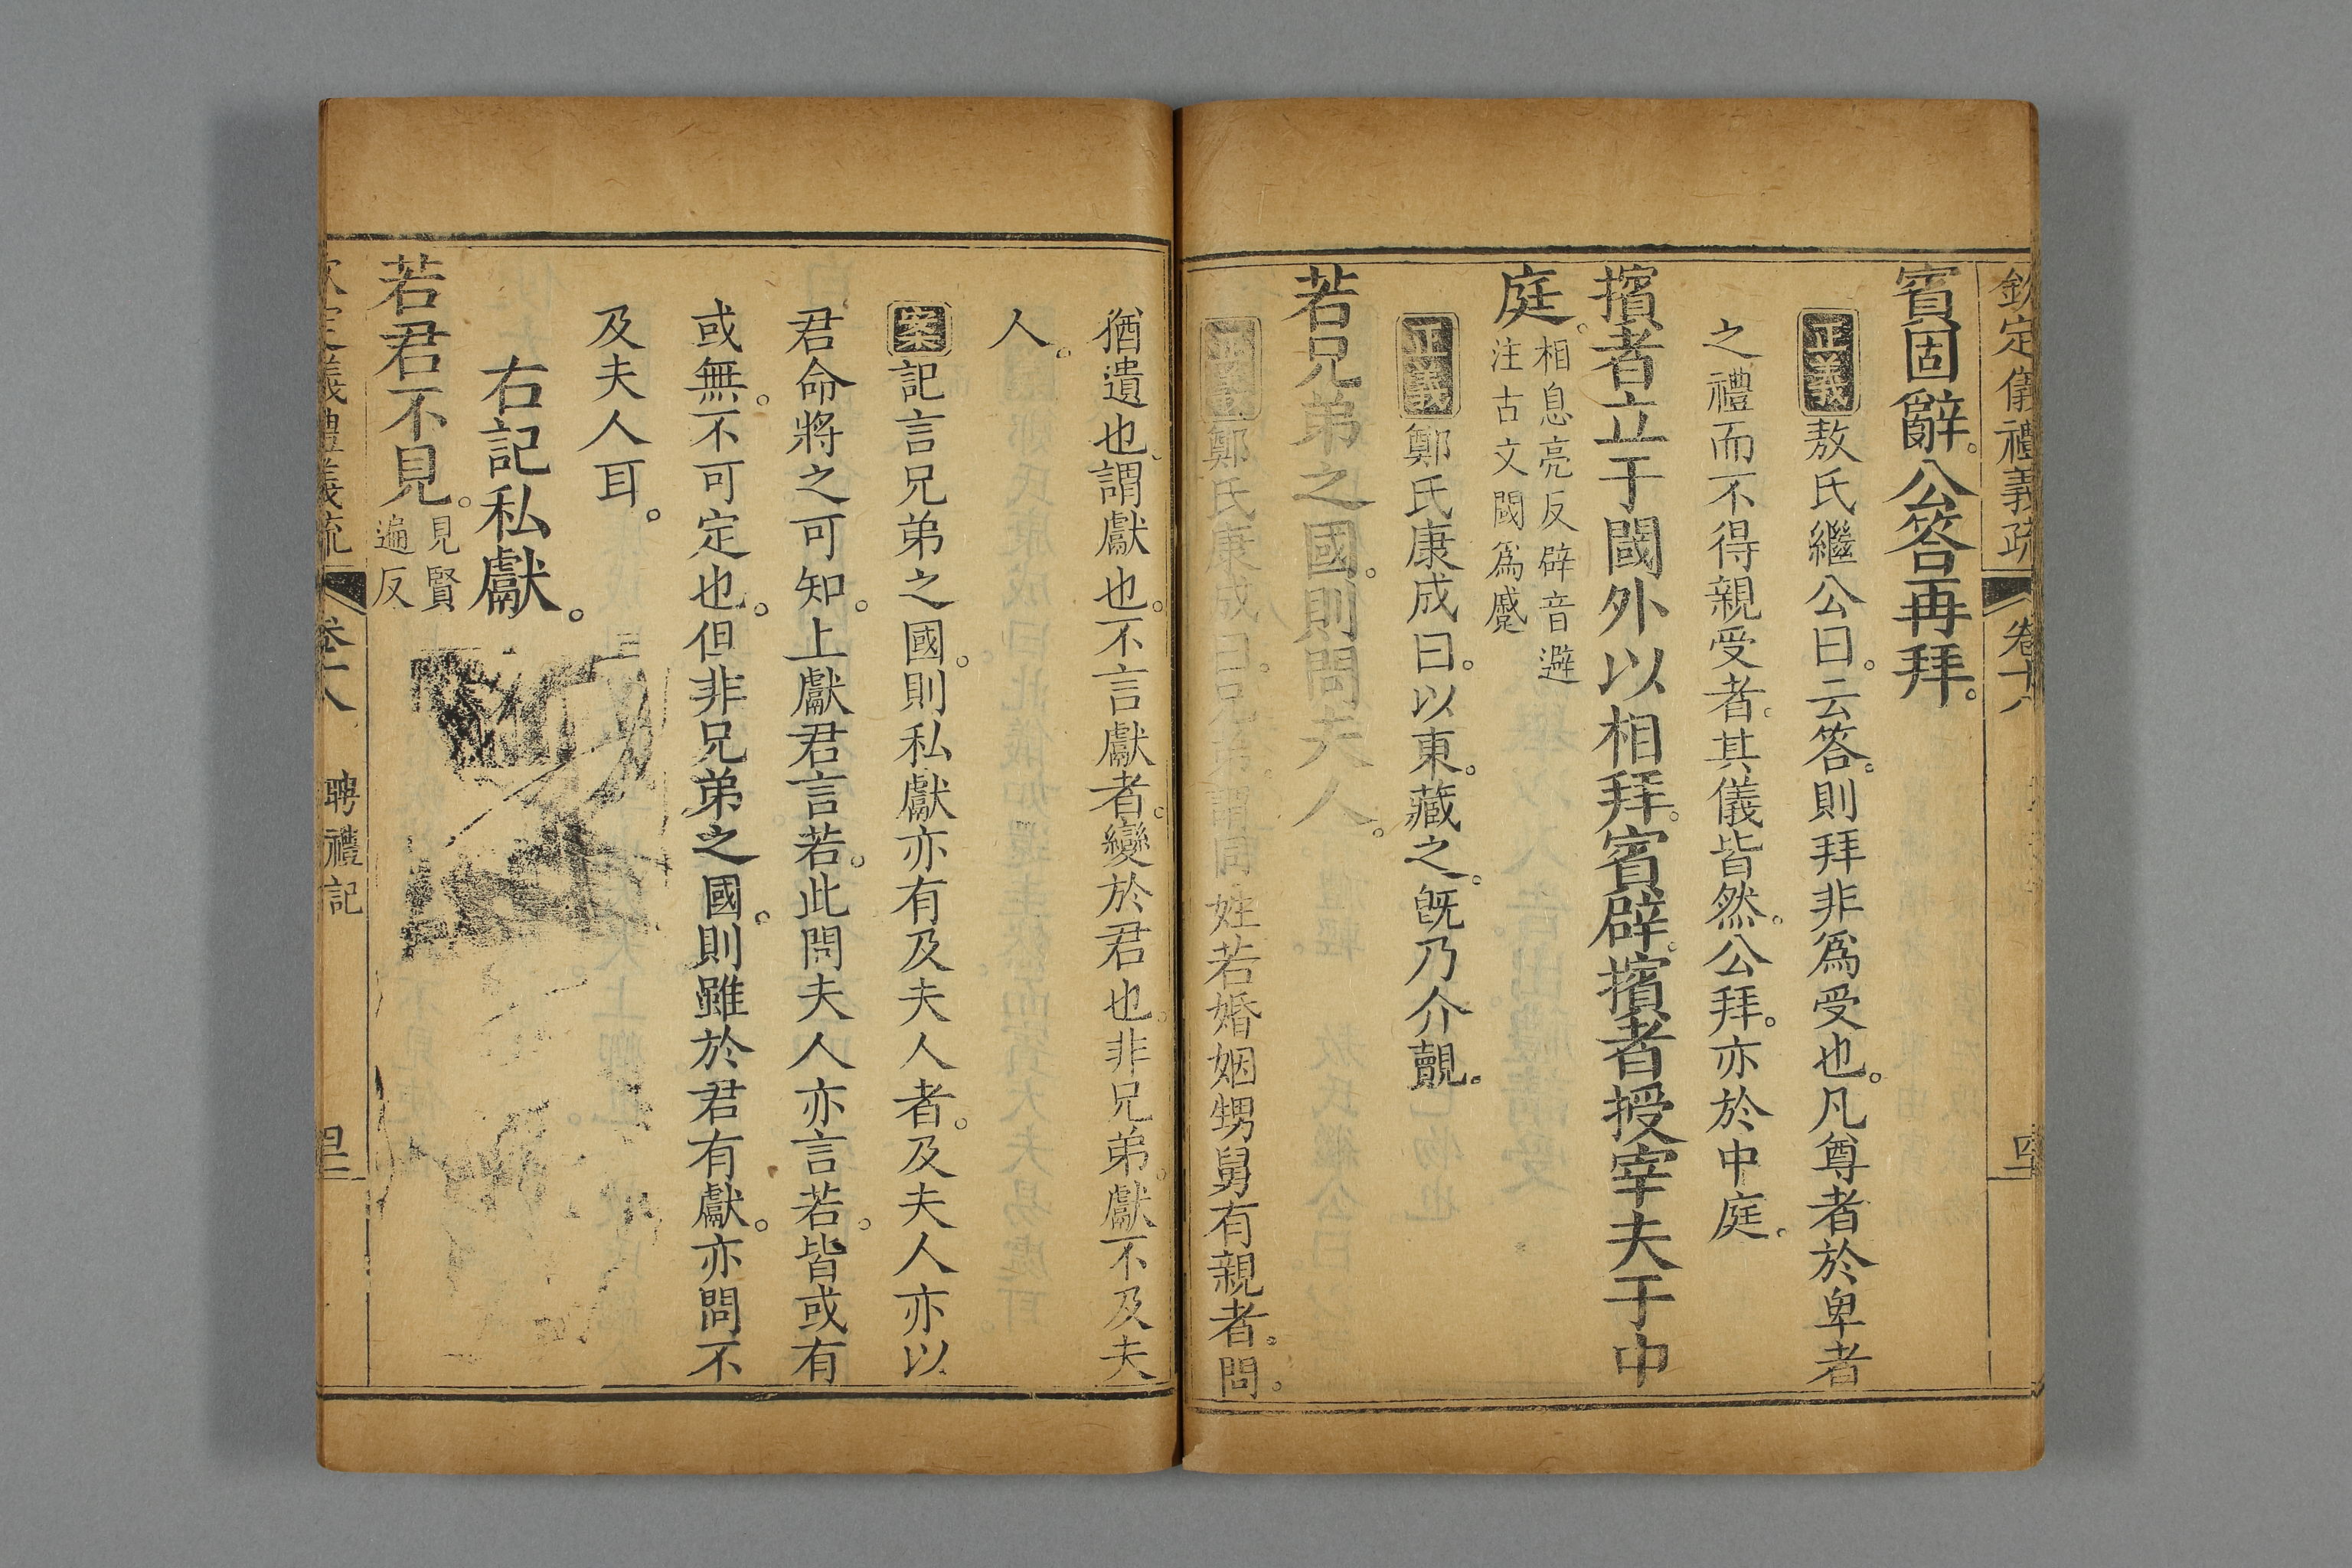 欽定儀禮義疏 卷十八
賓固辭。公答再拜。
正義 敖氏繼公曰。云答。則拜非爲受也。凡尊者於卑者
之禮而不得親受者。其儀皆然。公拜。亦於中庭。
擯者立于閾外以相拜。賓辟。擯者授宰夫于中
庭。相息亮反辟音避
注古文閾爲蹙
正義 鄭氏康成曰。以東。藏之。旣乃介覿。
若兄弟之國。則問夫人。
正義 鄭氏康成曰。兄弟。謂同姓若婚姻甥舅有親者。問。
猶遺也。謂獻也。不言獻者。變於君也。非兄弟。獻不及夫
人。
案 記言兄弟之國。則私獻亦有及夫人者。及夫人亦以
君命將之可知。上獻君言若。此問夫人亦言若。皆或有
或無。不可定也。但非兄弟之國。則雖於君有獻。亦問不
及夫人耳。
右記私獻。
若君不見。見賢
遍反
欽定儀禮義疏 卷十八 聘禮記